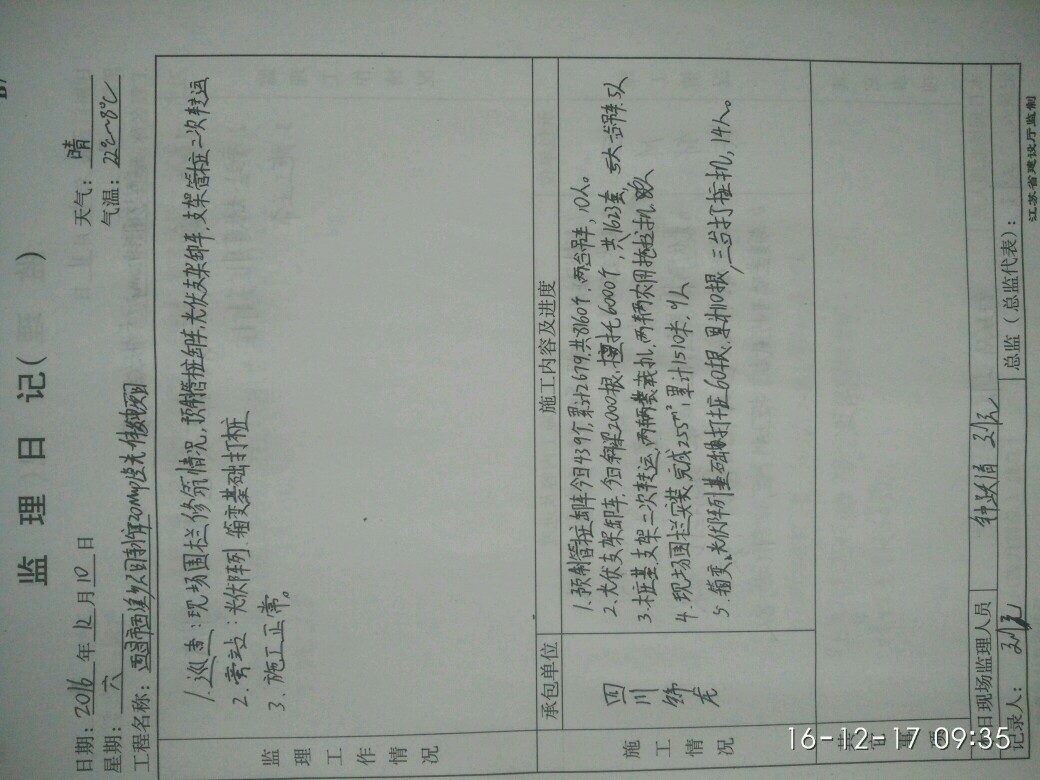 监 理 日 记（
日期：2016 年 12 月 10 日 天气：晴
星期：六 气温：22℃~8℃
工程名称：西昌市西溪乡 20Mwp 光伏
监理工作情况
1. 巡查：现场围栏修筑情况，预制管桩卸车，光伏支架卸车，支架管桩二次转运
2. 旁站：光伏阵列、箱变基础打桩
3. 施工正常。
承包单位 施工内容及进度
施工情况
四川
1. 预制管桩卸车今日439个，累计2679，共8160个，两台吊车，10人。
2. 光伏支架卸车，今日斜梁2000根，6000个，共1623套，一台吊车
3. 桩基支架二次转运，两辆装载机，两辆农用拖拉机
4. 现场围栏安装，完成255m，累计1510米，9人
5. 箱变、光伏阵列基础打桩60根，累计110根，三台打桩机，14人。
其
日现场监理人员
记录人： 总监（总监代表）：
江苏省建设厅监制
16-12-17 09:35